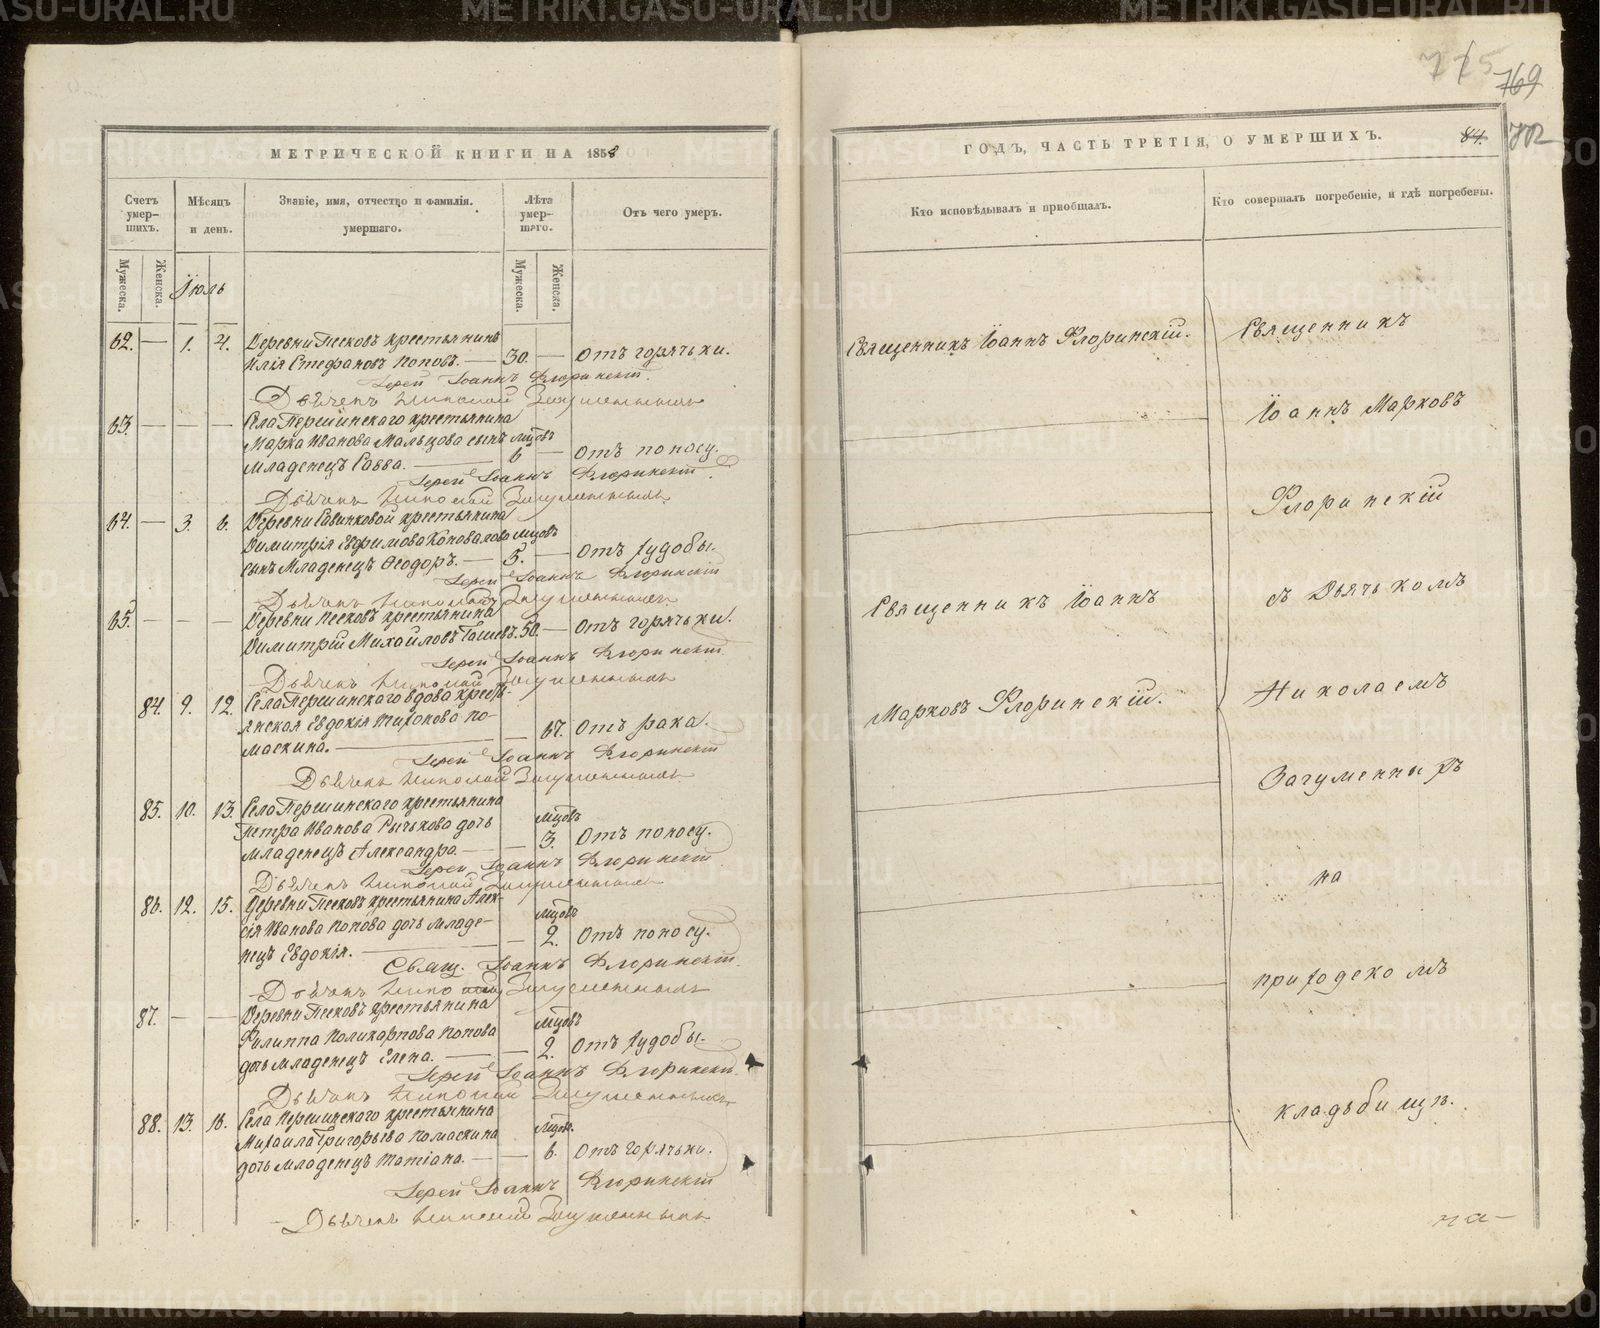 МЕТРИЧЕСКОЙ КНИГИ НА 1858
Счетъ умер-шихъ.
Мѣсяцъ и день.
Званіе, имя, отчество и фамилія. умершаго.
Лѣта умер-шаго.
Отъ чего умеръ.
Мужеска.
Женска.
Мужеска.
Женска.
Іюль
62. — 1. 4. Деревни Песковъ крестьянинъ
Илія Стефановъ Поповъ. — 30. — Отъ горячьки.
Іерей Іоаннъ Флоринскій.
Дьячекъ Николай Загуменныхъ
63. — — — Села Першинскаго крестьянина
Марка Иванова Мальцова сынъ мцовъ
Младенецъ Савва. — 6 — Отъ поносу.
Іерей Іоаннъ Флоринскій
Дьячекъ Николай Загуменныхъ
64. — 3. 6. Деревни Савинковой крестьянина
Димитрія Евфимова Коновалова мцовъ
сынъ Младенецъ Ѳеодоръ. — 5. — Отъ худобы.
Іерей Іоаннъ Флоринскій
Дьячекъ Николай Загуменныхъ
65. — — — Деревни Песковъ крестьянина
Димитрій Михайловъ 50. — Отъ горячьки.
Іерей Іоаннъ Флоринскій
Дьячекъ Николай Загуменныхъ
84. 9. 12. Села Першинскаго вдова кресть-
янская Евдокія Тихонова По-
маскина. — — 67. Отъ рака.
Іерей Іоаннъ Флоринскій
Дьячекъ Николай Загуменныхъ
85. 10. 13. Села Першинскаго крестьянина
Петра Иванова Рычькова дочь мцовъ
Младенецъ Александра. — — 3. Отъ поносу.
Іерей Іоаннъ Флоринскій
Дьячекъ Николай Загуменныхъ
86. 12. 15. Деревни Песковъ крестьянина Алек-
сія Иванова Попова дочь младе- мцовъ
нецъ Евдокія. — — 2. Отъ поносу.
Свящ. Іоаннъ Флоринскій.
Дьячекъ Николай Загуменныхъ
87. — — Деревни Песковъ крестьянина
Филиппа Поликарпова Попова мцовъ
дочь младенецъ Елена. — — 2. Отъ худобы.
Іерей Іоаннъ Флоринскій.
Дьячекъ Николай Загуменныхъ
88. 13. 16. Села Першинскаго крестьянина
Михаила Григорьева Помаскина мцов.
дочь младенецъ Татіана. — — 6. Отъ горячьки.
Іерей Іоаннъ Флоринскій
Дьячекъ Николай Загуменныхъ
715
769
702
ГОДЪ, ЧАСТЬ ТРЕТІЯ, О УМЕРШИХЪ.
84.
Кто исповѣдывалъ и пріобщалъ.
Кто совершалъ погребеніе, и гдѣ погребены.
Священникъ Іоаннъ Флоринскій.
Священникъ Іоаннъ
Марковъ Флоринскій.
Священникъ
Іоаннъ Марковъ
Флоринскій
съ Дьячькомъ
Николаемъ
Загуменныхъ
на
приходскомъ
кладьбищѣ.
на-
METRIKI.GASO-URAL.RU